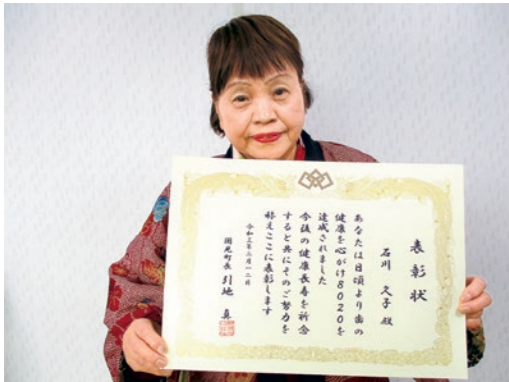 表彰状
石川 久子 殿
あなたは日頃より歯の
健康を心がけ8020を
達成されました
今後の健康長寿を祈念
すると共にそのご努力を
称えここに表彰します
令和三年二月一二日
国見町長 引地 真